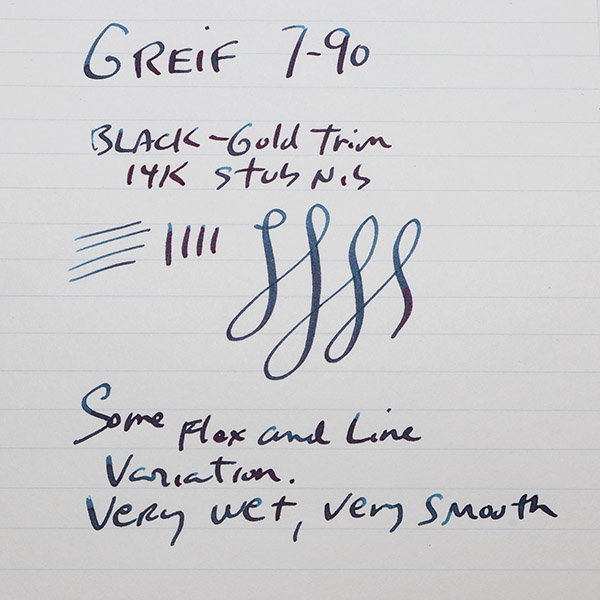 GREIF 7-90
BLACK-Gold Trim
14K Stub Nib
Some Flex and Line
Variation.
Very wet, very smooth